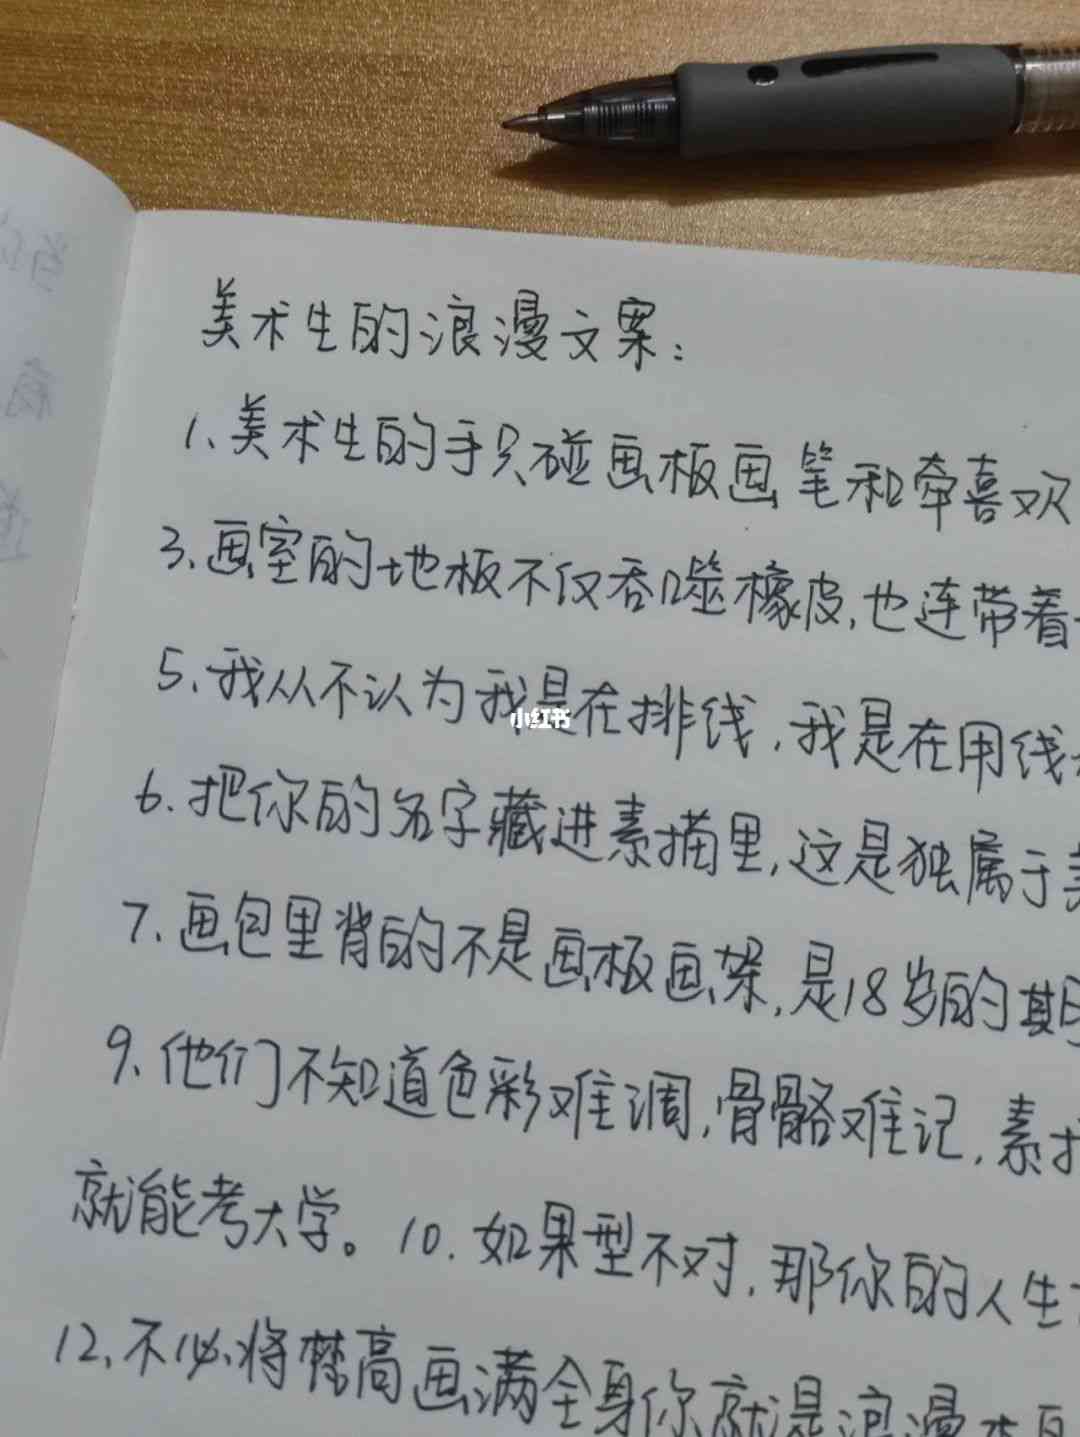 美术生的浪漫文案：
1、美术生的手只碰画板画笔和牵喜欢
3、画室的地板不仅吞噬橡皮，也连带着
5、我从不认为我是在排线，我是在用线
小红书
6、把你的名字藏进素描里，这是独属于美
7、画包里背的不是画板画架，是18岁的期
9、他们不知道色彩难调，骨骼难记，素描
就能考大学。10、如果型不对，那你的人生
12、不必将梵高画满全身你就是浪漫本身